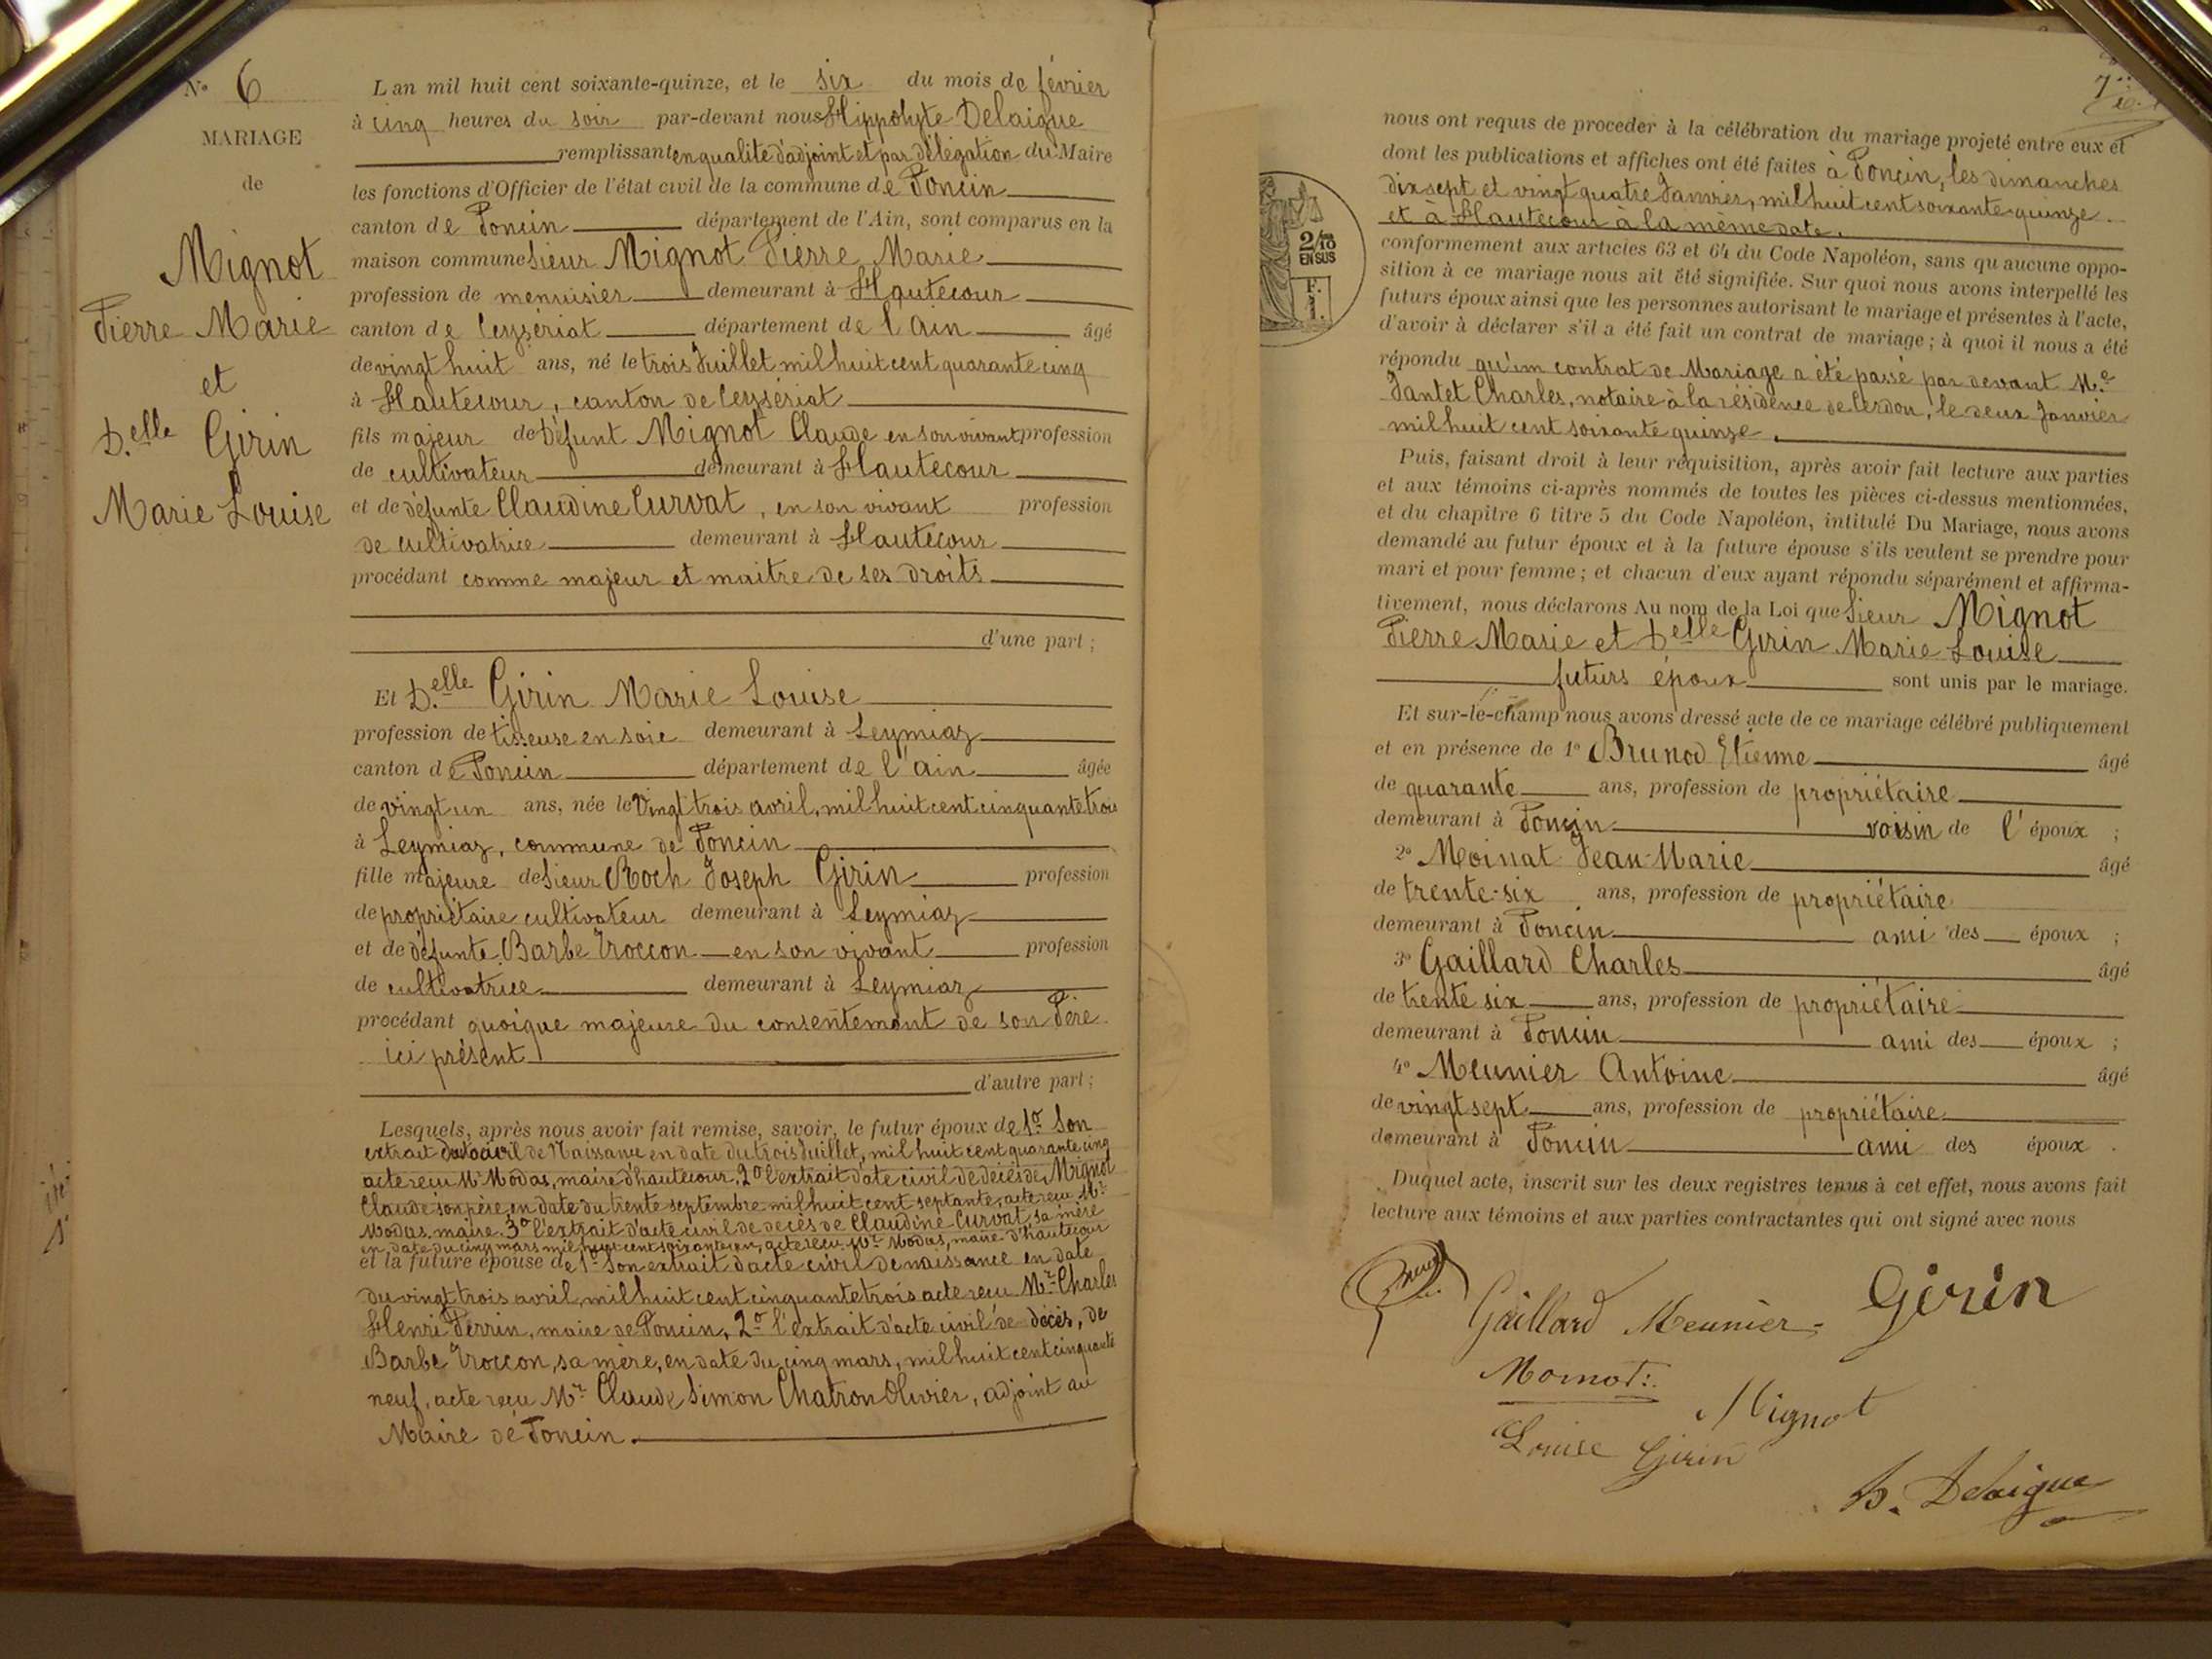 N° 6
MARIAGE
de
Mignot
Pierre Marie
et
D.elle Girin
Marie Louise
L'an mil huit cent soixante-quinze, et le six du mois de février
à cinq heures du soir par-devant nous Hippolyte Delaigue
remplissant en qualité d'adjoint et par délégation du Maire
les fonctions d'Officier de l'état civil de la commune de Poncin
canton de Poncin département de l'Ain, sont comparus en la
maison commune Sieur Mignot Pierre Marie
profession de menuisier demeurant à Hautecour
canton de Ceyzériat département de l'Ain âgé
de vingt huit ans, né le trois Juillet mil huit cent quarante cinq
à Hautecour, canton de Ceyzériat
fils majeur de Défunt Mignot Claude en son vivant profession
de cultivateur demeurant à Hautecour
et de défunte Claudine Curvat, en son vivant profession
de cultivatrice demeurant à Hautecour
procédant comme majeur et maitre de ses droits
d'une part ;
Et D.elle Girin Marie Louise
profession de tisseuse en soie demeurant à Leymiaz
canton de Poncin département de l'ain âgée
de vingt un ans, née le Vingt trois avril, mil huit cent cinquante trois
à Leymiaz, commune de Poncin
fille majeure de Sieur Roch Joseph Girin profession
de propriétaire cultivateur demeurant à Leymiaz
et de défunte Barbe Troccon en son vivant profession
de cultivatrice demeurant à Leymiaz
procédant quoique majeure du consentement de son Père
ici présent
d'autre part ;
Lesquels, après nous avoir fait remise, savoir, le futur époux de 1° Son
extrait civil de Naissance en date du trois Juillet, mil huit cent quarante cinq
acte reçu Mr Modas, maire d'hautecour, 2° l'extrait d'ate civil de décès de Mignot
Claude son père, en date du trente septembre mil huit cent septante, acte reçu Mr
Modas, maire. 3° l'extrait d'acte civil de décès de Claudine Curvat sa mère
en date du cinq mars mil huit cent soixante un, acte reçu Mr Modas, maire d'hautecour
et la future épouse de 1° Son extrait d'acte civil de naissance en date
du vingt trois avril, mil huit cent cinquante trois acte reçu Mr Charles
Henri Perrin, maire de Poncin, 2° l'extrait d'acte civil de décès, de
Barbe Troccon, sa mère, en date du cinq mars, mil huit cent cinquante
neuf, acte reçu Mr Claude Simon Chatron Olivier, adjoint au
Maire de Poncin.
nous ont requis de proceder à la célébration du mariage projeté entre eux et
dont les publications et affiches ont été faites à Poncin, les dimanches
dix sept et vingt quatre Janvier, mil huit cent soixante quinze.
et à Hautecour à la même date.
2/10 EN SUS
F. 1.
conformement aux articles 63 et 64 du Code Napoléon, sans qu'aucune oppo-
sition à ce mariage nous ait été signifiée. Sur quoi nous avons interpellé les
futurs époux ainsi que les personnes autorisant le mariage et présentes à l'acte,
d'avoir à déclarer s'il a été fait un contrat de mariage ; à quoi il nous a été
répondu qu'un contrat de Mariage a été passé par devant M.e
Jantet Charles, notaire à la résidence de Cerdon, le deux Janvier
mil huit cent soixante quinze.
Puis, faisant droit à leur réquisition, après avoir fait lecture aux parties
et aux témoins ci-après nommés de toutes les pièces ci-dessus mentionnées,
et du chapitre 6 titre 5 du Code Napoléon, intitulé Du Mariage, nous avons
demandé au futur époux et à la future épouse s'ils veulent se prendre pour
mari et pour femme ; et chacun d'eux ayant répondu séparément et affirma-
tivement, nous déclarons Au nom de la Loi que Sieur Mignot
Pierre Marie et Delle Girin Marie Louise
futurs époux sont unis par le mariage.
Et sur-le-champ nous avons dressé acte de ce mariage célébré publiquement
et en présence de 1° Brunod Etienne âgé
de quarante ans, profession de propriétaire
demeurant à Poncin voisin de l'époux ;
2° Moinat Jean-Marie âgé
de trente-six ans, profession de propriétaire
demeurant à Poncin ami des époux ;
3° Gaillard Charles âgé
de trente six ans, profession de propriétaire
demeurant à Poncin ami des époux ;
4° Meunier Antoine âgé
de vingt sept ans, profession de propriétaire
demeurant à Poncin ami des époux.
Duquel acte, inscrit sur les deux registres tenus à cet effet, nous avons fait
lecture aux témoins et aux parties contractantes qui ont signé avec nous
Gaillard Meunier Girin
Moinat
Mignot
Louise Girin
h. Delaigue